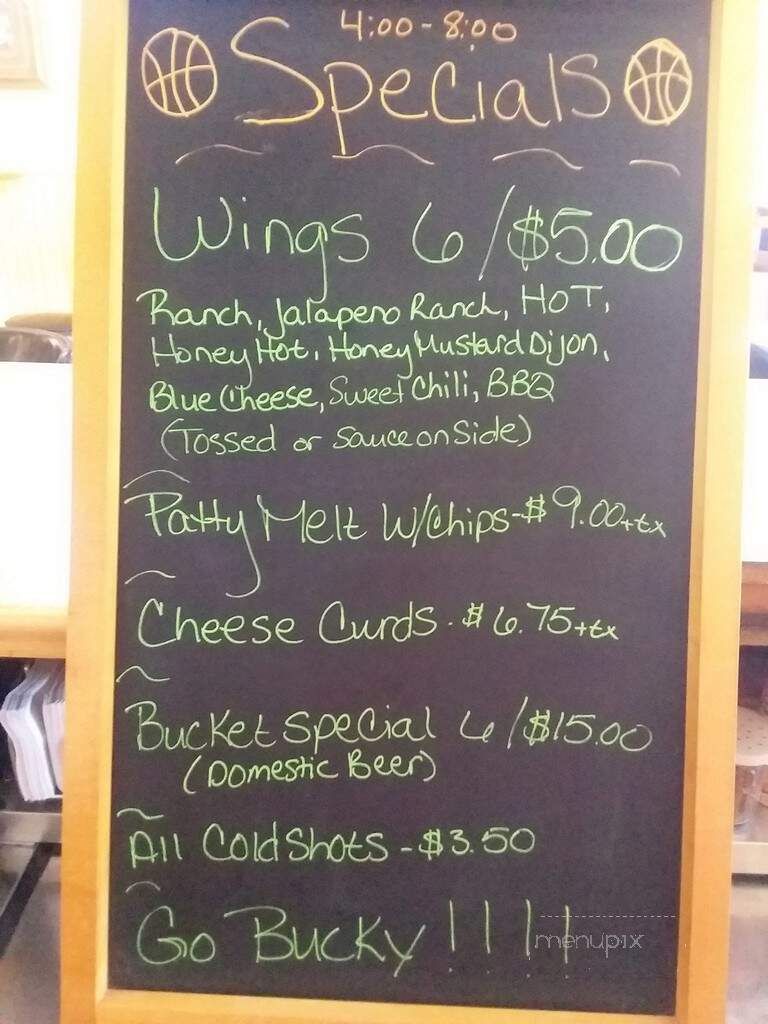 4:00-8:00
Specials
Wings 6/$5.00
Ranch, Jalapeno Ranch, HOT,
Honey Hot, Honey Mustard Dijon,
Blue Cheese, Sweet Chili, BBQ
(Tossed or Sauce on Side)
Patty Melt W/Chips-$9.00+tx
Cheese Curds - $6.75+tx
Bucket Special 6/$15.00
(Domestic Beer)
All Cold Shots - $3.50
Go Bucky!!!!
menupix